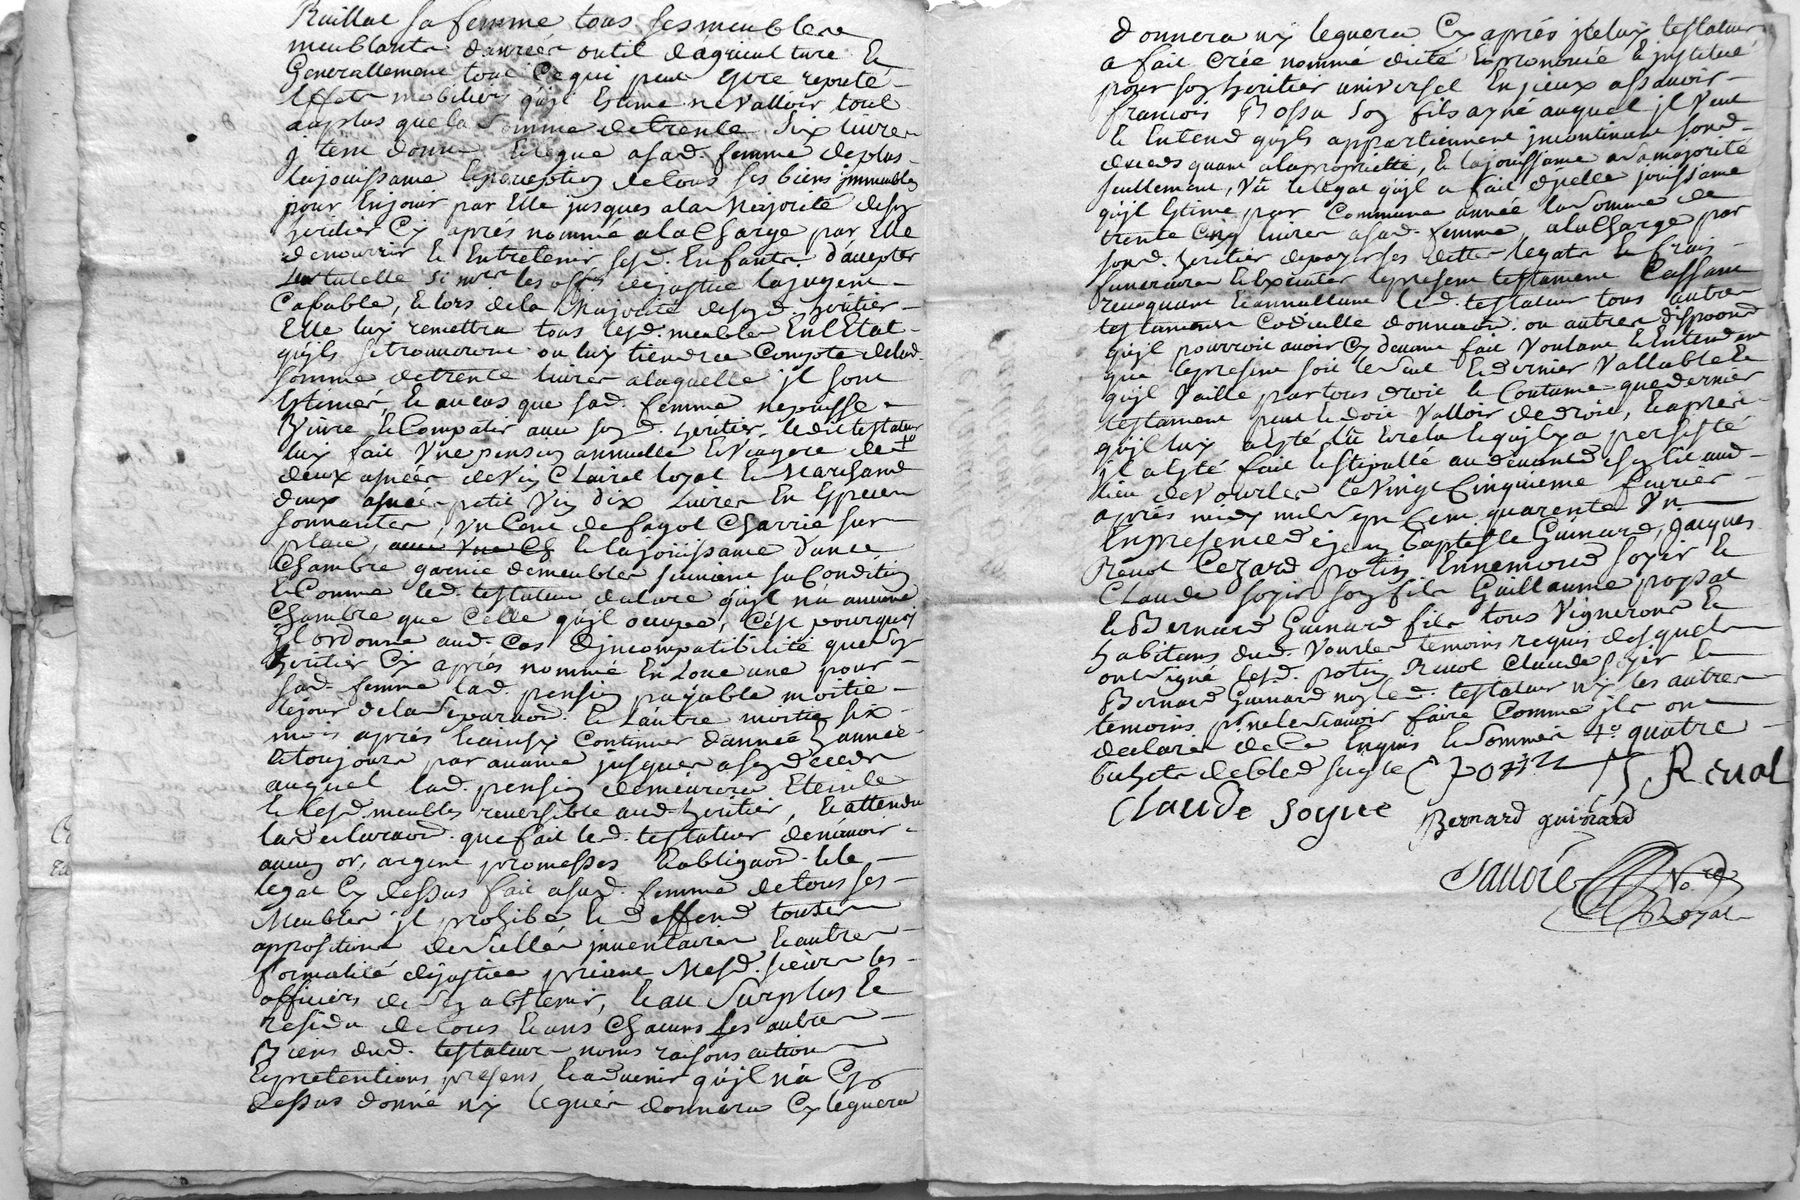 Ruillat sa femme tous ses meubles
meublants danrées outil dagriculture Et
Generallement tout Ce qui peut Estre reputé
Effets mobiliers quil Estime ne valloir tout
auplus que la somme de trente six livres
Jtem donne Legue asad. femme deplus
Lajouissance Eperception detous ses biens jmmeubles
pour Enjouir par Elle jusques ala Majorité desoy
heritier Cy aprés nommé ala Charge par Elle
denourrir Et Entretenir sesd. Enfants daccepter
La tutelle si mrs les offrs dejustice lajugent
Capable, Et lors dela Majorité desond. heritier
Elle luy remettra tous lesd. meubles En LEtat
quils setrouveront ou luy tiendra Compte delad.
somme detrente livres alaquelle jl sont
Estimés, Et au cas que sad. femme nepuisse
Vivre Et Compatir avec sond. heritier, ledit testateur
luy fait Vne pension annuelle Et Viagere de
deux asnées devin Clairet loyal Et Marchand
deux asnées petit Vin dix Livres En Especes
sonnantes, Vn Cent defagot Charrié sur
place, avec Vne Ch Et lajouissance dune
Chambre garnie demeubles suivant sa Condition
Et Comme led. testateur declare quil na aucune
Chambre que Celle quil occupe, Cest pourquoy
jl ordonne aud. Cas djncompatibilité queson
heritier Cy aprés nommé En Loue une pour
sad. femme lad. pension payable moitié
lejour dela separaon. Et Lautre moitié six
mois aprés Et ainsy Continuer dannée En année
Et toujours par avance jusques ason deceds
auquel lad. pension demeurera Eteinte
Et lesd. meubles reversible aud. heritier, Et attendu
la declaraon. que fait led. testateur denavoir
aucun or, argent promesses Et obligaon. Et le
legat Cy dessus fait asad. femme detous ses
Meubles jl prohibe Et deffend toutes
appositions descellés jnventaires Et autres
formalité dejustice priant Mesd. sieurs les
officiers de sen abstenir, Et au Surplus Et
residu detous Et uns Chacuns ses autres
Biens dud. testateur noms raisons actions
Et pretentions presens Et advenir quil na Cy
dessus donné ny legué donnera Cy leguera
donnera ny leguera Cy aprés jceluy testateur
a fait Créé nommé dicté Et prononcé Et jnstitué
pour soy heritier universel En jceux assavoir
francois Bossu soy fils ayné auquel jl Veut
Et Entend quils appartiennent jncontinant sond.
deceds quant alaproprietté, Et lajouissance asa majorité
seullement, Vû Le legat quil a fait djcelle jouissance
quil Estime par Commune année la somme de
trente Cinq livres asad. femme, ala Charge par
sond. heritier depayer ses dettes legats Et frais
funeraires Et Executer lepresent testament Cassant
revoquant Et annullant led. testateur tous autres
testaments Codicille donnaon. ou autres disposon
quil pourroit avoir Cy devant fait Voulant Et Entendant
que lepresent soit le seul Et dernier Vallable Et
quil Vaille partous droit Et Coutume que dernier
testament peut Et doit Valloir dedroit, Et aprés
quil luy a Esté lû Et relu Et quil y a persisté
jl a Esté fait Et stipullé audevant deglise aud.
lieu de Vourles Ce Vingt Cinquieme fevrier
aprés midy mil sept Cent quarente Vn
En presence dejean Baptiste Guinard, Jacques
Renol Cezard potin Ennemond soyer Et
Claude soyer soy fils Guillaume popat
Et Bernard Guinard fils tous Vignerons Et
habitans dud. Vourles temoins requis desquels
ont signé lesd. potin Renol Claude soyer Et
Bernard Guinard non led. testateur ny les autres
temoins pr. ne le scavoir faire Comme jls ont
declaré dece Enquis Et sommés 4o quatre
bichets debled seigle C potin J Renol
Claude soyee Bernard guinard
Savoie No.re
Royal